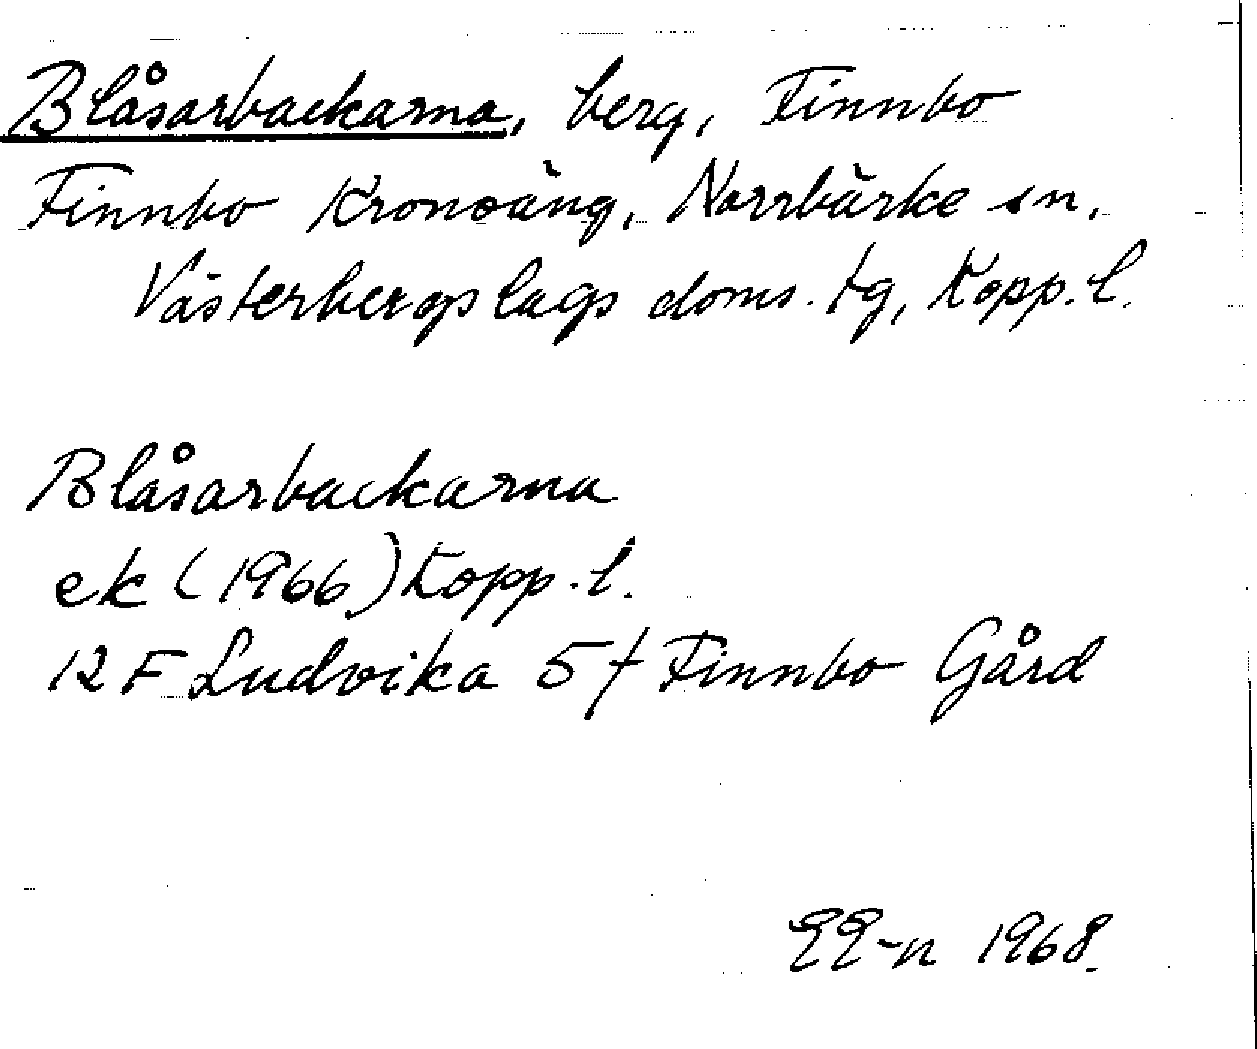 Blåsarbackarna, berg, Finnbo
Finnbo Kronoäng, Norrbärke sn,
Västerbergslags doms. tg, Kopp. l.
Blåsarbackarna
ek (1966) Kopp. l.
12 F Ludvika 5 f Finnbo Gård
EE-n 1968.